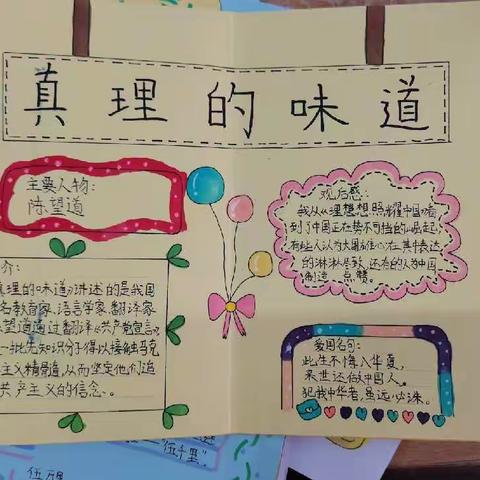 真理的味道
主要人物:
陈望道
介:
真理的味道》讲述的是我国
名教育家、语言学家、翻译家
望道通过翻译《共产党宣言》,
一批先知识分子得以接触马克
主义精髓,从而坚定他们追
共产主义的信念。
观后感:
我从《理想照耀中国》看
到了中国正在势不可挡的崛起,
有些人认为大国雄心在其中表达
的淋淋尽致,还有的人为中国
制造点赞。
爱国名句:
此生不悔入华夏,
来世还做中国人。
犯我中华者,虽远必诛。
"伍千里".
伍万里